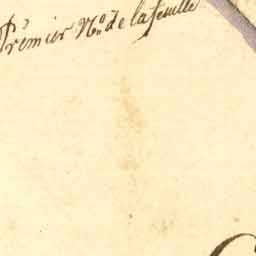 Premier N.º de la feuille